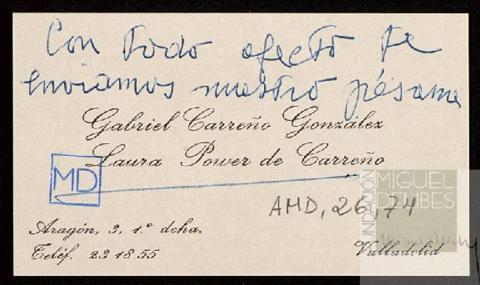 Con todo afecto te
enviamos nuestro pésame
Gabriel Carreño González
Laura Power de Carreño
MD
AMD, 26, 74
FUNDACIÓN
MIGUEL
DELIBES
Aragón, 3, 1.º dcha.
Teléf. 23 18 55
Valladolid